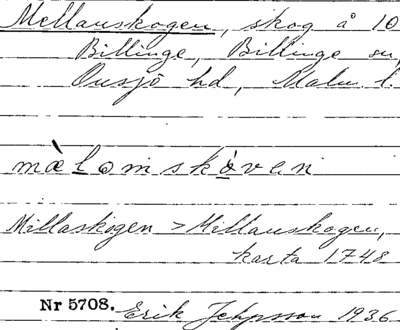 Mellauskogen, skog å 10
Billinge, Billinge sn,
Onsjö hd, Malm. l.
mæ̀lomskåven
Millaskogen > Millauskogen,
karta 1748
Nr 5708. Erik Jeppsson 1936